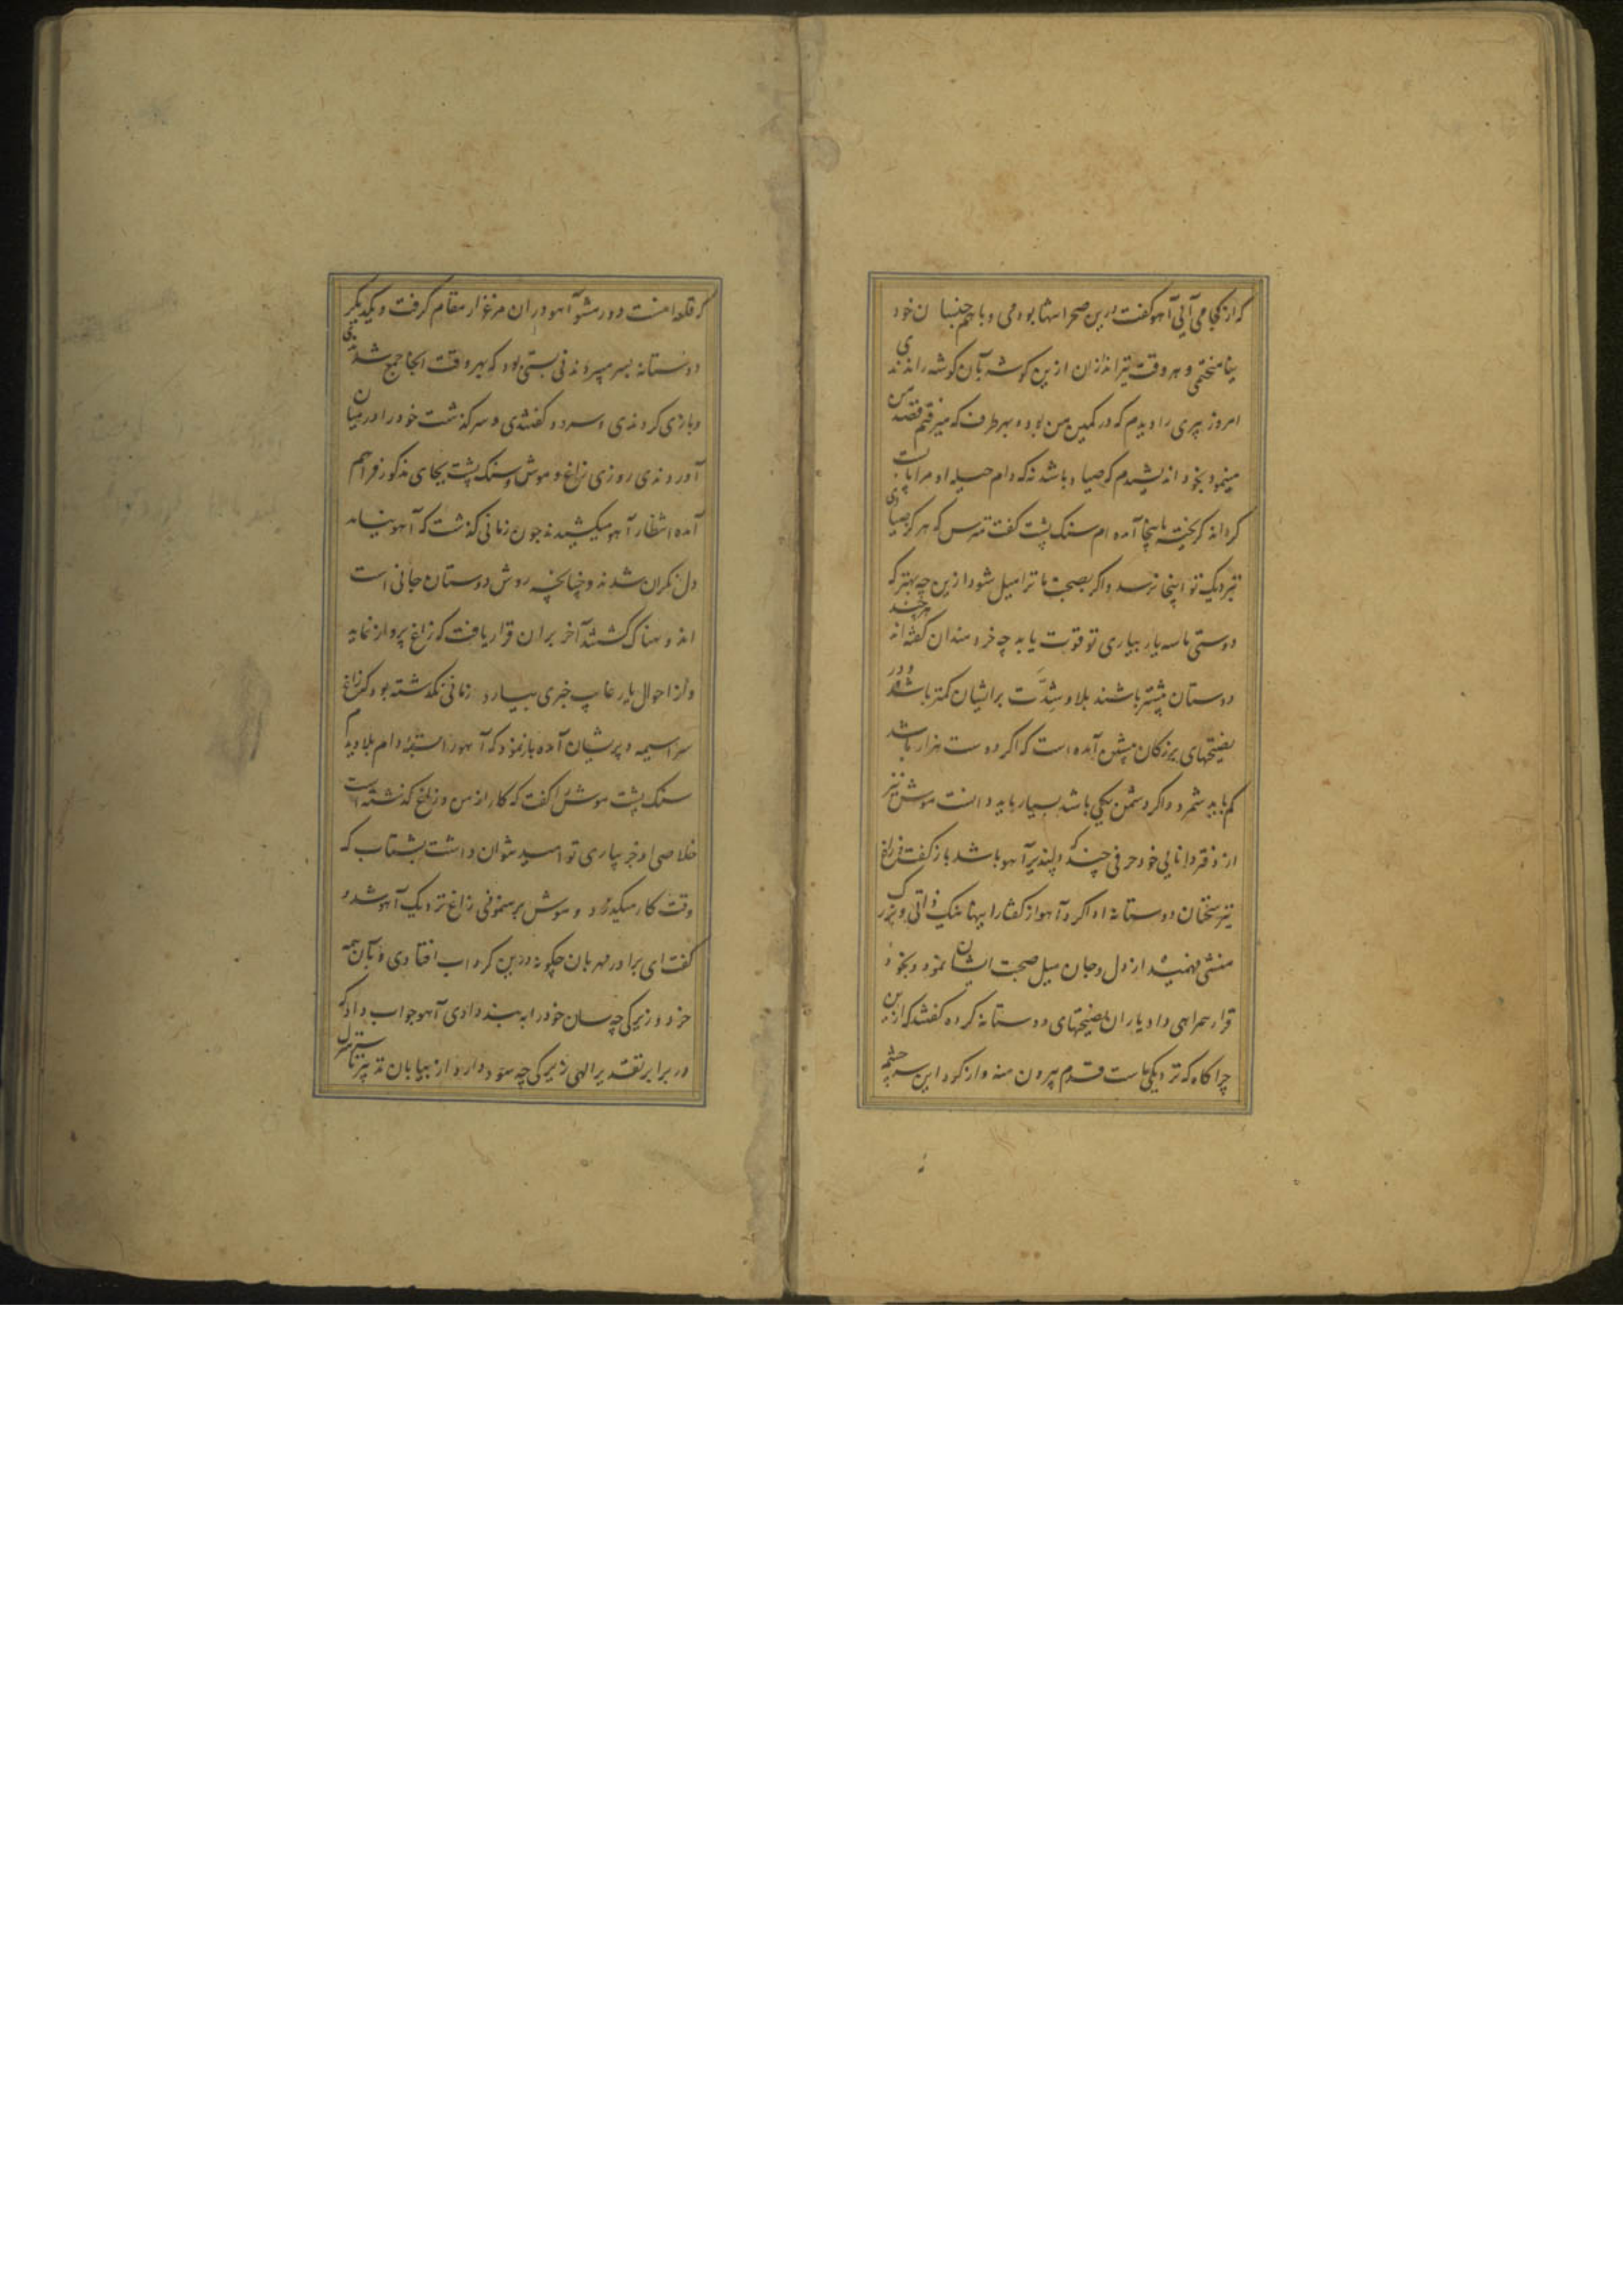 که از کجا می آیی آهو گفت درین صحرا تنها بودمی و با همجنسان خود
نیامیختمی و هر وقت تیراندازان ازین گوشه بآن گوشه راندندی
امروز پیری را دیدم که در کمین من بوده بهر طرف که میرفتم قصد من
مینمود بخود اندیشیدم که صیاد باشد نه که دام حیله او مرا پابست
گرداند گریخته باینجا آمده ام سنک پشت گفت مترس که هرگز صیادی
نزدیک تو اینجا نرسد و اگر بصحبت ما ترا میل شود ازین چه بهتر که
دوستی ما سه یار بیاری تو قوت یابد چه خردمندان گفته اند هرچند
دوستان بیشتر باشند بلا و شدّت بر ایشان کمتر باشد و در
نصیحتهای بزرگان پیشین آمده است که اگر دوست هزار باشد
کم باید شمرد و اگر دشمن یکی باشد بسیار باید دانست موش نیز
از دفتر دانایی خود حرفی چند که دلپذیر آهو باشد باز گفت و زاغ
نیز سخنان دوستانه ادا کرد آهو از گفتار اینها نیک ذاتی و بزرک
منشی فهمیده از دل و جان میل صحبت ایشان نمود و بخود
قرار همراهی داد یاران نصیحتهای دوستانه کرده گفتند که ازین
چراگاه که نزدیکی ماست قدم بیرون منه و از گرد این سرچشمه
که قلعه امنست دور مشو آهو در ان مرغزار مقام گرفت و یکدیگر
دوستانه بسر میبردند نی بستی بود که بهر وقت انجا جمع شدندی
و بازی کردندی و سرود گفتندی و سرگذشت خود را در میان
آوردندی روزی زاغ و موش و سنک پشت بجای مذکور فراهم
آمده انتظار آهو میکشیدند چون زمانی گذشت که آهو نیامد
دل نگران شدند و چنانچه روش دوستان جانی است
اندوهناک گشتند آخر بران قرار یافت که زاغ پرواز نماید
و از احوال یار غایب خبری بیارد زمانی نگذشته بود که زاغ
سراسیمه و پریشان آمده باز نمود که آهو را بسته دام بلا دیدم
سنک پشت موش را گفت که کار از من و زاغ گذشته است
خلاصی او جز بیاری تو امید نتوان داشت بشتاب که
وقت کار میگذرد و موش برهنمونی زاغ نزدیک آهو شد و
گفت ای برادر مهربان چگونه درین گرداب افتادی و بآن همه
خرد و زیرکی چه سان خود را به بند دادی آهو جواب داد که
در برابر تقدیر الهی زیرکی چه سود دارد از بیابان تدبیر تا سرمنزل